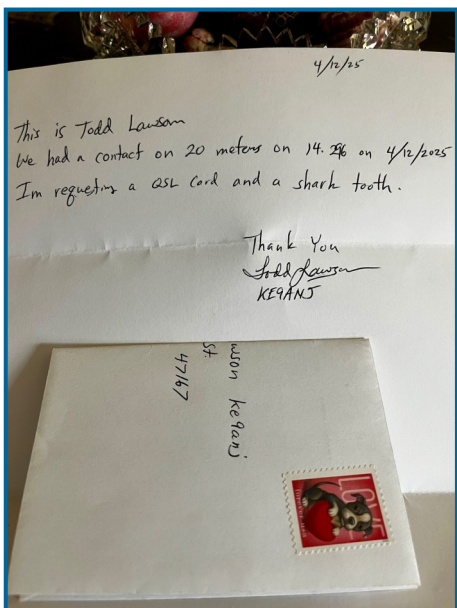 4/12/25
This is Todd Lawson
We had a contact on 20 meters on 14.296 on 4/12/2025
Im requesting a QSL Card and a shark tooth.
Thank You
Todd Lawson
KE9ANJ
wson ke9anj
St.
47167
LOVE